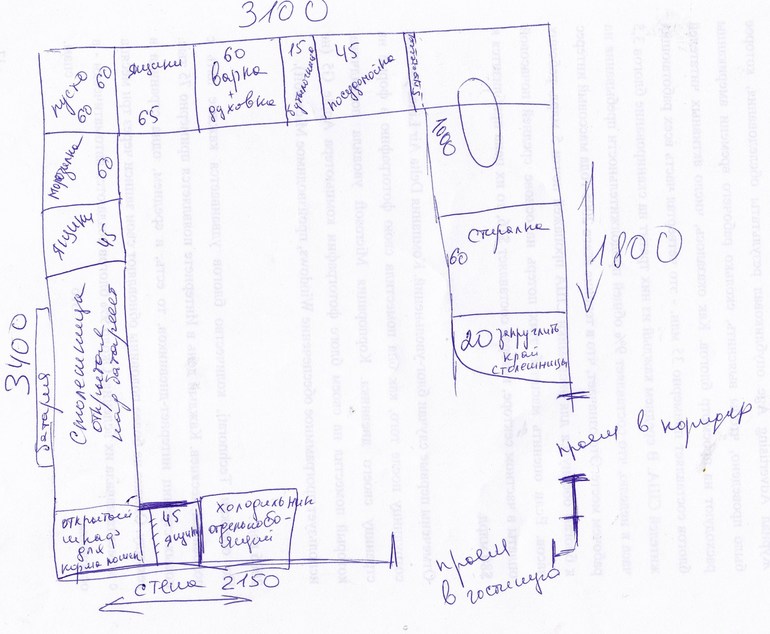 3100
пусто
60
60
ящики
65
60
варка
+
духовка
15
бутылочница
45
посудомойка
1000
морозилка
60
ящики
45
стиралка
60
1800
20 закруглить
край
столешницы
3400
батарея
Столешница
открытая
над батареей
проем в коридор
открытый
шкаф
для
корма кошек
- 45
- ящики
холодильник
отдельносто-
ящий
проем
в гостиную
стена 2150